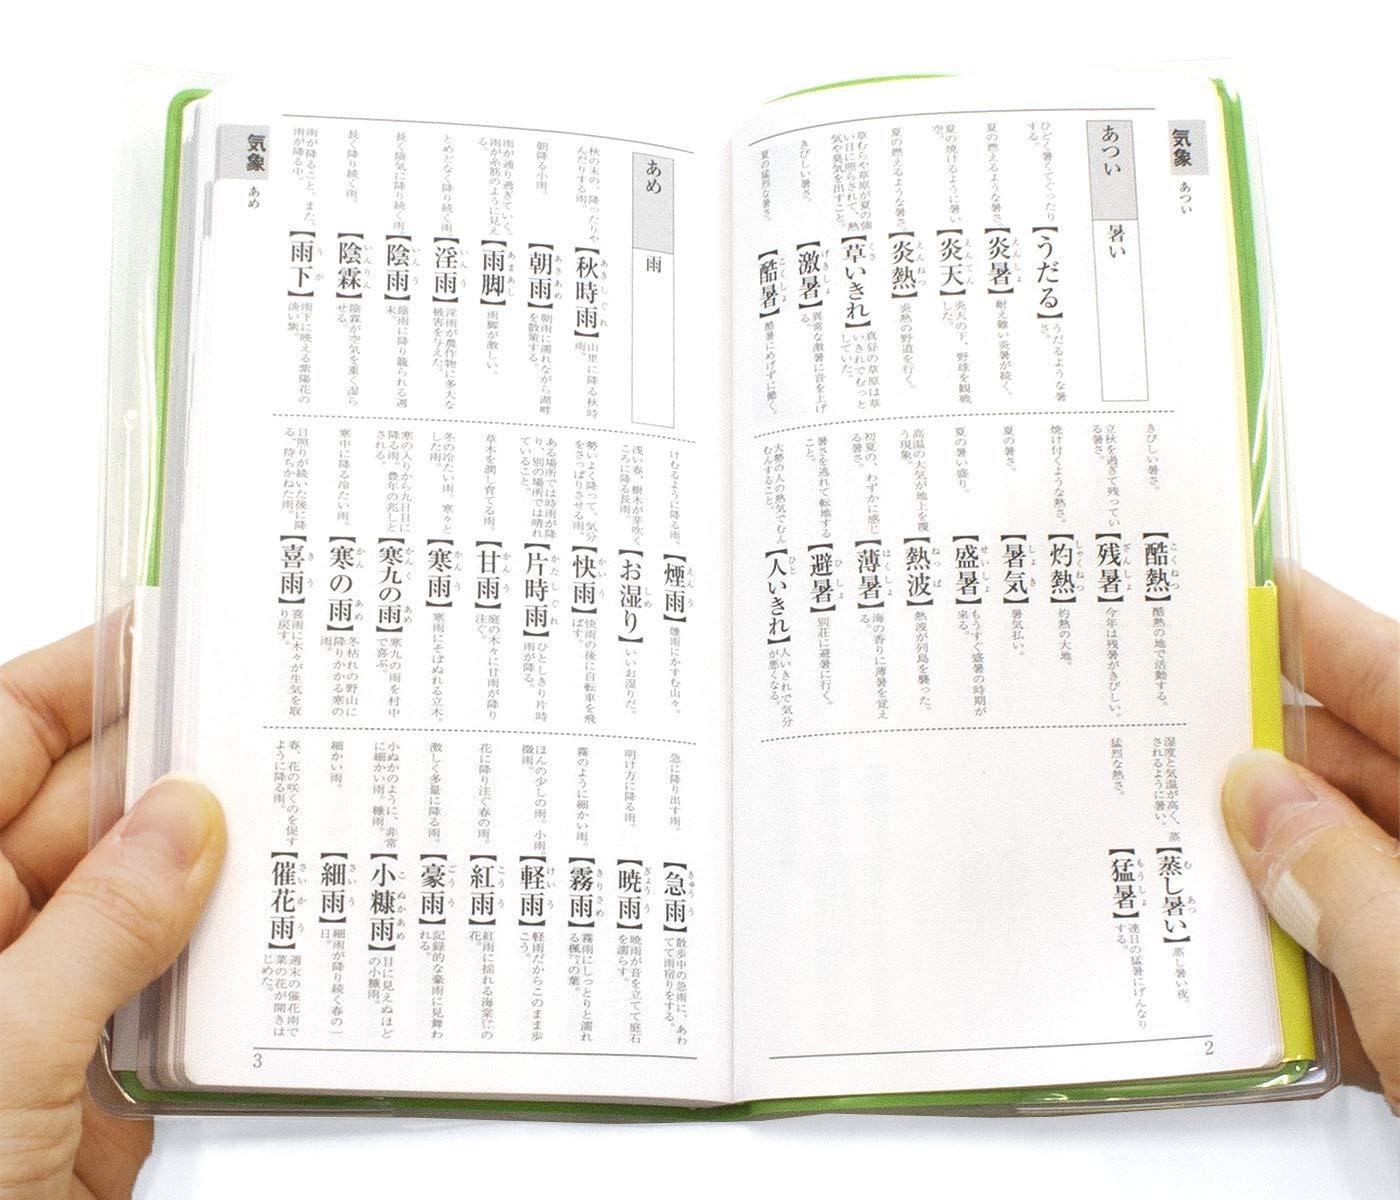 気象
あつい
あつい
暑い
ひどく暑くてぐったり
する。
【うだる】
うだるような暑
さ。
夏の燃えるような暑さ。
【炎暑】
えんしょ
耐え難い炎暑が続く。
夏の焼けるように暑い
空。
【炎天】
えんてん
炎天の下、野球を観戦
した。
夏の燃えるような暑さ。
【炎熱】
えんねつ
炎熱の野道を行く。
草むらや草原が夏の強
い日に照らされて、熱
気や臭気を出すこと。
【草いきれ】
くさ
真昼の草原は草
いきれでむっと
していた。
きびしい暑さ。
【激暑】
げきしょ
異常な激暑に音を上げ
る。
夏の猛烈な暑さ。
【酷暑】
こくしょ
酷暑にめげずに働く。
きびしい暑さ。
【酷熱】
こくねつ
酷熱の地で活動する。
立秋を過ぎて残ってい
る暑さ。
【残暑】
ざんしょ
今年は残暑がきびしい。
焼け付くような熱さ。
【灼熱】
しゃくねつ
灼熱の大地。
夏の暑さ。
【暑気】
しょき
暑気払い。
夏の暑い盛り。
【盛暑】
せいしょ
もうすぐ盛暑の時期が
来る。
高温の大気が地上を覆
う現象。
【熱波】
ねっぱ
熱波が列島を襲った。
初夏の、わずかに感じ
る暑さ。
【薄暑】
はくしょ
海の香りに薄暑を覚え
る。
暑さを逃れて転地する
こと。
【避暑】
ひしょ
別荘に避暑に行く。
大勢の人の熱気でむん
むんすること。
【人いきれ】
ひと
人いきれで気分
が悪くなる。
湿度と気温が高く、蒸
されるように暑い。
【蒸し暑い】
む あつ
蒸し暑い夜。
猛烈な熱さ。
【猛暑】
もうしょ
連日の猛暑にげんなり
する。
2
気象
あめ
あめ
雨
秋の末の、降ったりや
んだりする雨。
【秋時雨】
あきしぐれ
山里に降る秋時
雨。
朝降る小雨。
【朝雨】
あさあめ
朝雨に濡れながら湖畔
を散策する。
雨が通り過ぎていく、
雨が糸筋のように見え
る。
【雨脚】
あまあし
雨脚が激しい。
とめどなく降り続く雨。
【淫雨】
いんう
淫雨が農作物に多大な
被害を与えた。
長く陰気に降り続く雨。
【陰雨】
いんう
陰雨に降り籠られる週
末。
長く降り続く雨。
【陰霖】
いんりん
陰霖が空気を重く湿ら
せる。
雨が降ること。また、
雨が降る中。
【雨下】
うか
雨下に映える紫陽花の
淡い紫。
けむるように降る雨。
【煙雨】
えんう
煙雨にかすむ山々。
浅い春、樹木が芽吹く
ころに降る長雨。
【お湿り】
しめ
いいお湿りだ。
勢いよく降って、気分
をさっぱりさせる雨。
【快雨】
かいう
快雨の後に自転車を飛
ばす。
ある場所では時雨が降
り、別の場所では晴れ
ていること。
【片時雨】
かたしぐれ
ひとしきり片時
雨が降る。
草木を潤し育てる雨。
【甘雨】
かんう
庭の木々に甘雨が降り
注ぐ。
冬の冷たい雨。寒々と
した雨。
【寒雨】
かんう
寒雨にそぼぬれる立木。
寒の入りから九日目に
降る雨。豊年の兆しと
される。
【寒九の雨】
かんく あめ
寒九の雨を村中
で喜ぶ。
寒中に降る冷たい雨。
【寒の雨】
かん あめ
冬枯れの野山に
降りかかる寒の
雨。
日照りが続いた後に降
る、待ちかねた雨。
【喜雨】
きう
喜雨に木々が生気を取
り戻す。
急に降り出す雨。
【急雨】
きゅうう
散歩中の急雨に、あわ
てて雨宿りをする。
明け方に降る雨。
【暁雨】
ぎょうう
暁雨が音を立てて庭石
を濡らす。
霧のように細かい雨。
【霧雨】
きりさめ
霧雨にしっとりと濡れ
る楓の葉。
ほんの少しの雨。小雨。
微雨。
【軽雨】
けいう
軽雨だからこのまま歩
こう。
花に降り注ぐ春の雨。
【紅雨】
こうう
紅雨に揺れる海棠の
花。
激しく多量に降る雨。
【豪雨】
ごうう
記録的な豪雨に見舞わ
れる。
小ぬかのように、非常
に細かい雨。糠雨。
【小糠雨】
こぬかあめ
目に見えぬほど
の小糠雨。
細かい雨。
【細雨】
さいう
細雨が降り続く春の一
日。
春、花の咲くのを促す
ように降る雨。
【催花雨】
さいかう
週末の催花雨で
菜の花が開きは
じめた。
3